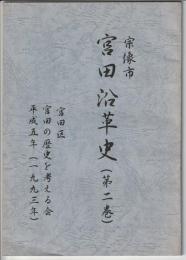 宗像市
宮田沿革史(第二巻)
宮田区
宮田の歴史を考える会
平成五年(一九九三年)